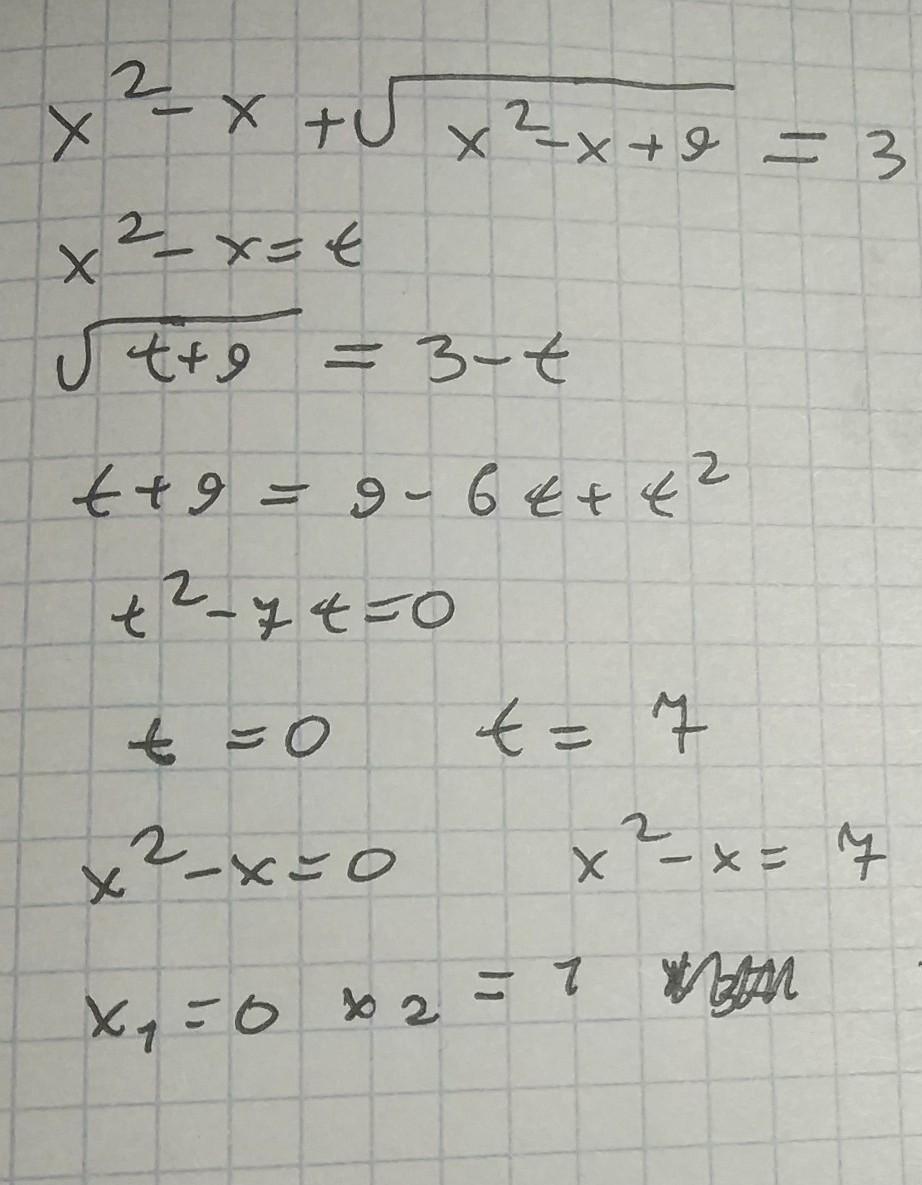 x² - x + √(x² - x + 9) = 3
x² - x = t
√(t + 9) = 3 - t
t + 9 = 9 - 6t + t²
t² - 7t = 0
t = 0 t = 7
x² - x = 0 x² - x = 7
x₁ = 0 x₂ = 1